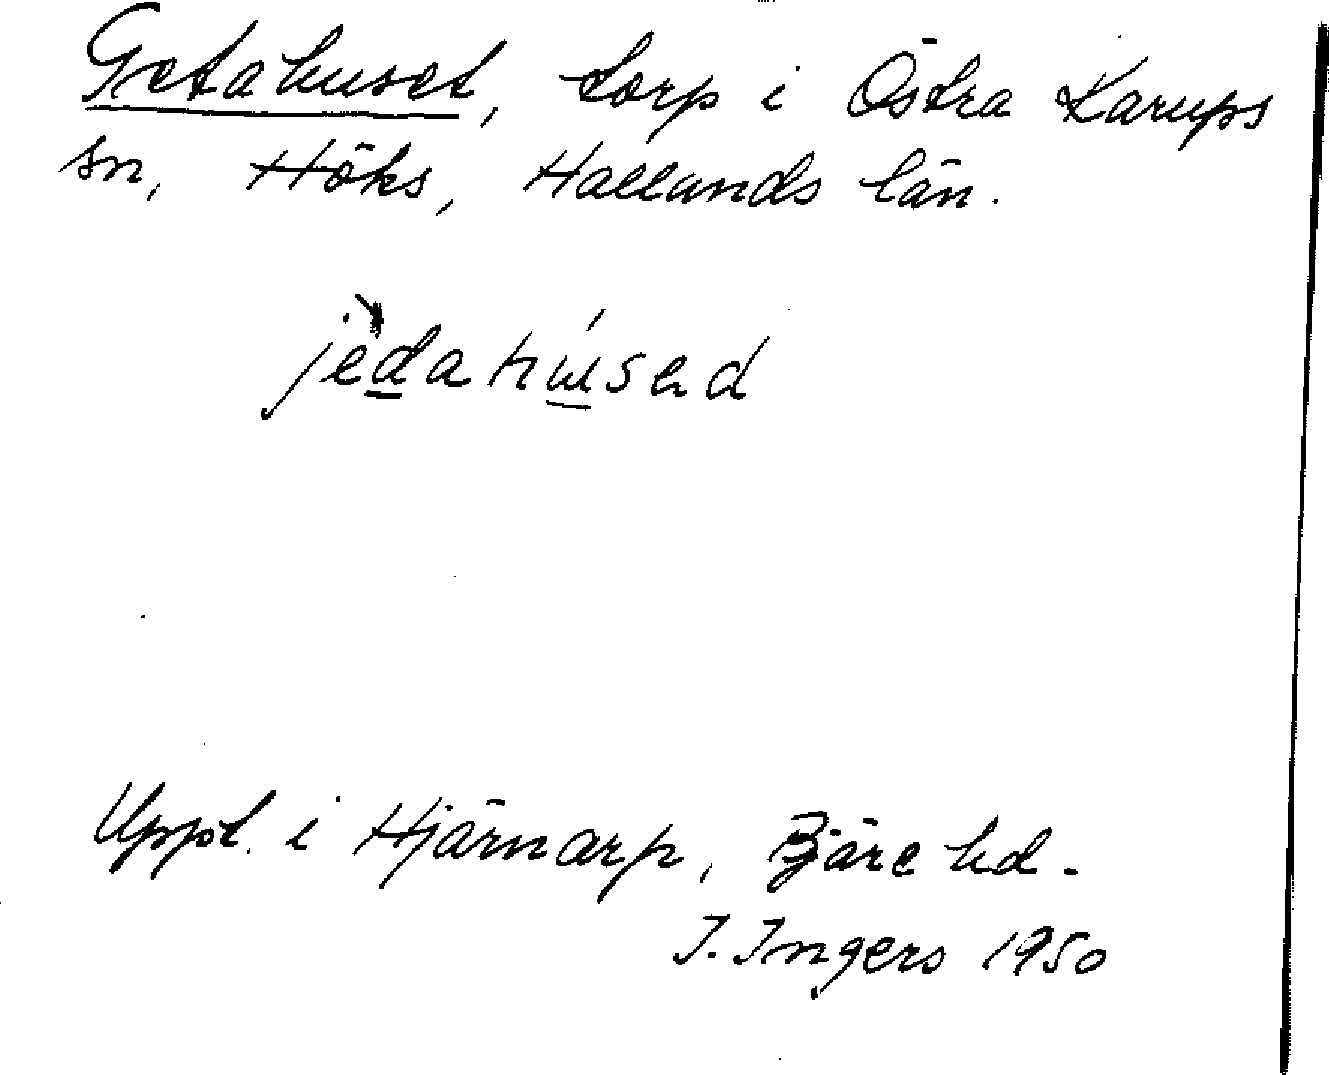 Getahuset, torp i Östra Karups
sn, Höks, Hallands län.
jèdahúsəd
Uppt. i Hjärnarp, Bjäre hd.
I. Ingers 1950